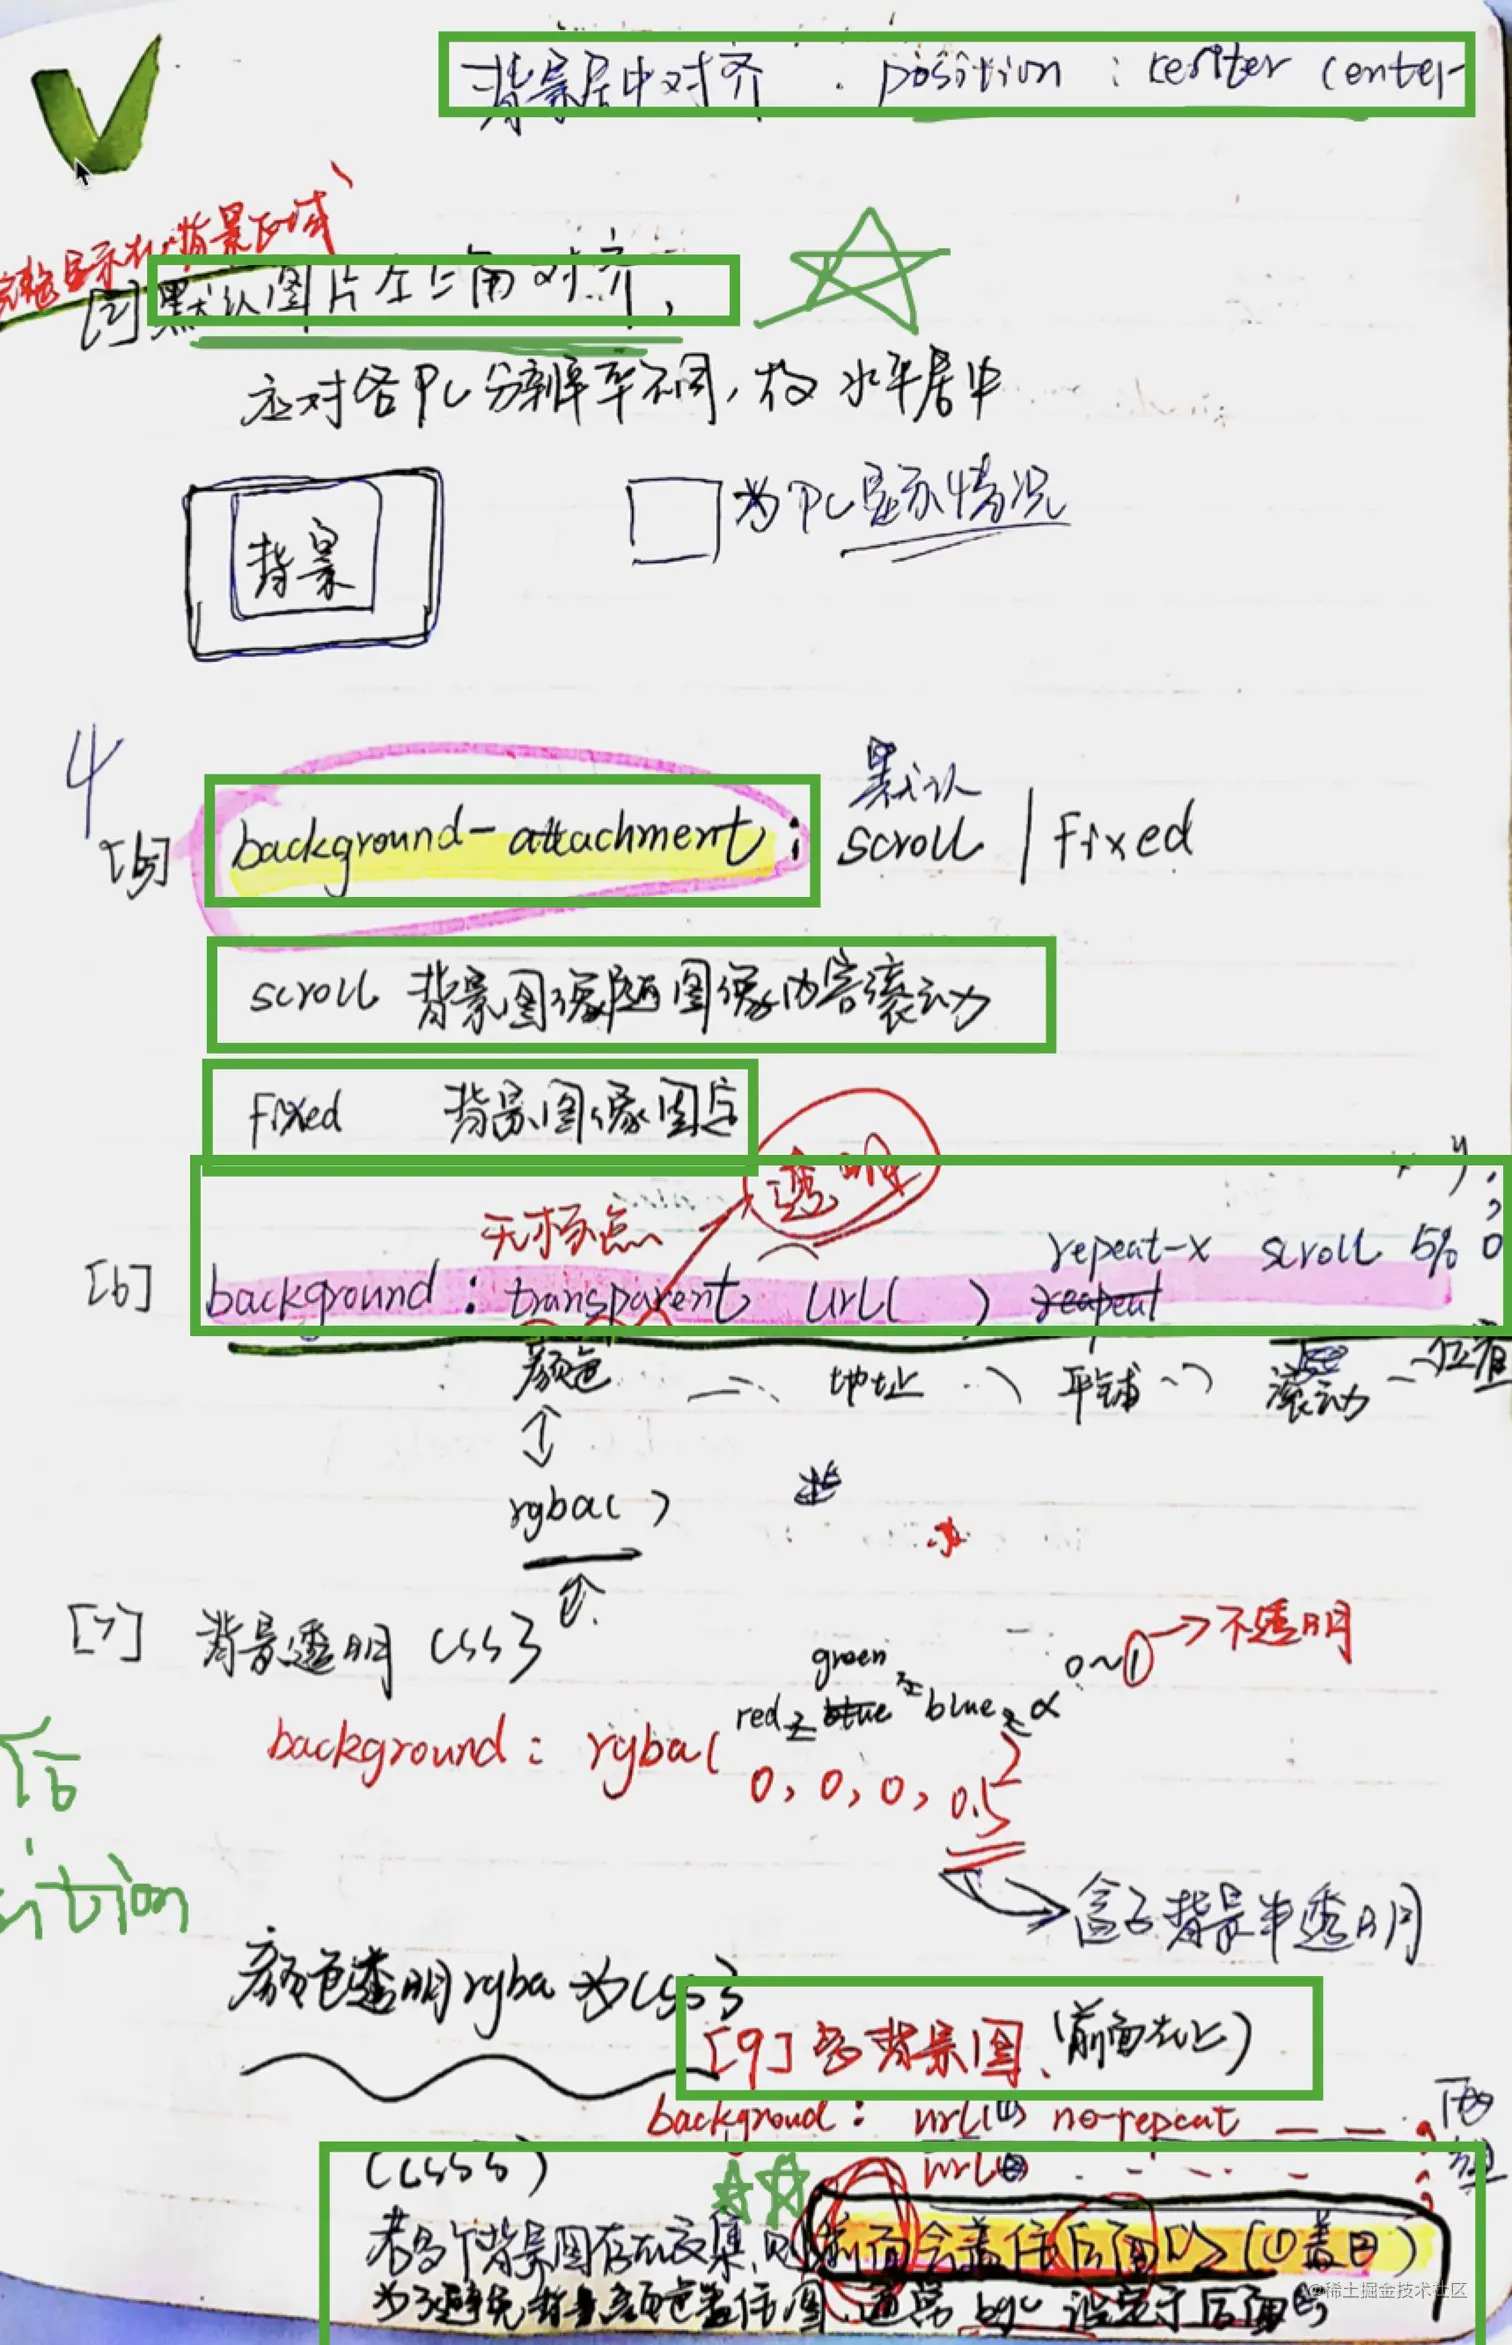 背景居中对齐 . position : center center
完整显示在背景区域
[2] 默认图片左上角对齐,
应对各PC分辨率不同,故水平居中
背景
为PC显示情况
4
默认
[5] background-attachment : scroll | Fixed
scroll 背景图像随图像内容滚动
Fixed 背景图像固定
透明
x y ;
repeat-x scroll 5% 0
[6] background : transparent url( ) reapeat
颜色 地址 平铺 滚动 位置
rgba( )
[7] 背景透明 CSS3
0~1 → 不透明
green
red blue blue α
background : rgba(
0, 0, 0, 0.5 )
盒子背景半透明
ition
颜色透明rgba为CSS3
[9] 多背景图、(前面在上)
backgroud : url(1) no-repeat
(CSS3) url(2)
若多个背景图存在交集,则前面会盖住后面 (①盖②)
为了避免背景颜色盖住图,通常bgc设定于后面
@稀土掘金技术社区